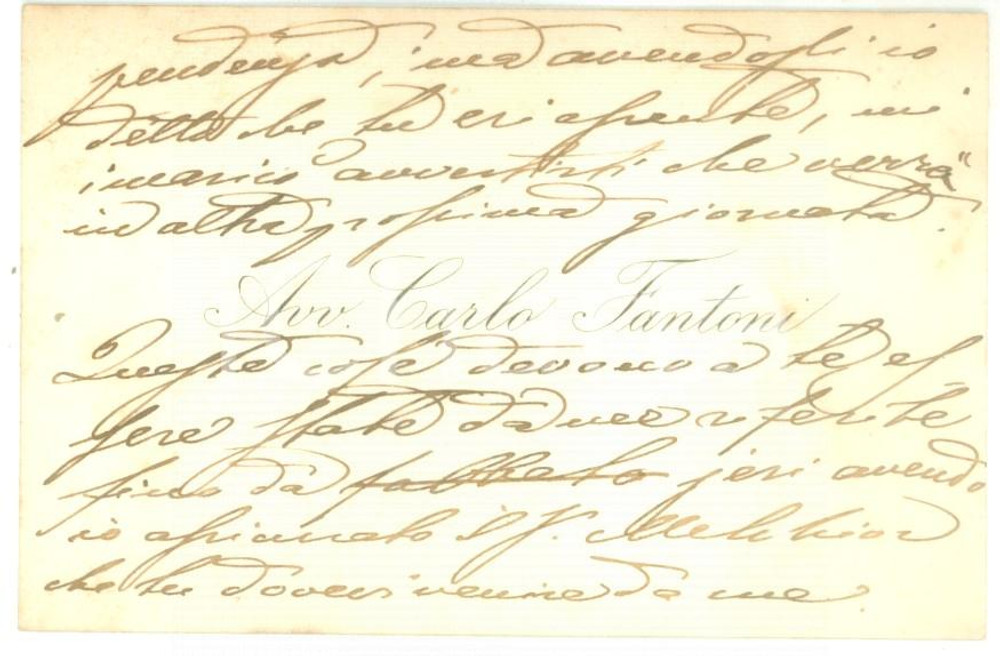 pendenza, ma avendogli io
detto che tu eri assente, mi
incaricò avvertirti che verrà
in altra prossima giornata.
Avv. Carlo Fantoni
Queste cose devono a te es
sere state da me riferite
fino da jeri avendo
io assicurato il S.r Melchior
che tu dovevi venire da me.